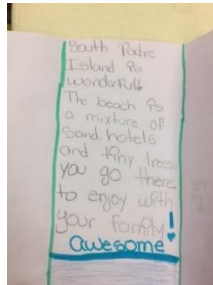 South Padre
Island is
wonderful!
The beach is
a mixture of
Sand, hotels
and tiny trees,
you go there
to enjoy with
your family!
awesome